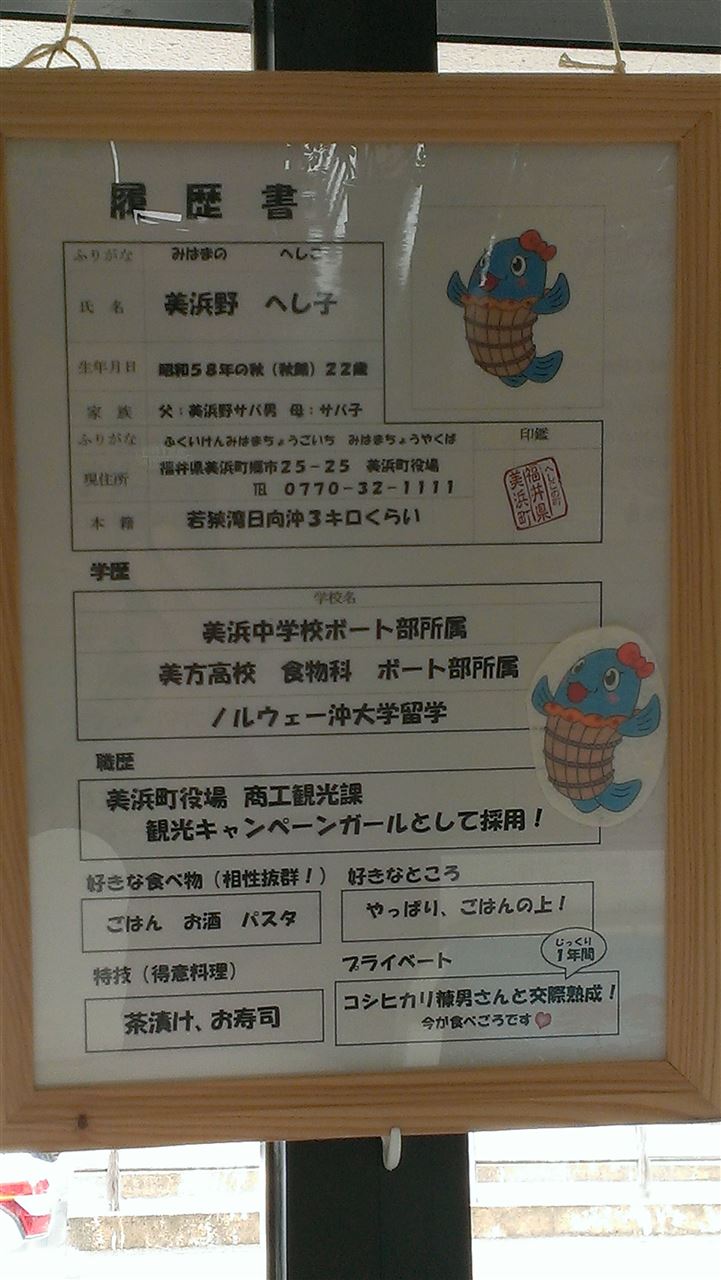 履歴書
ふりがな みはまの へしこ
氏名 美浜野 へし子
生年月日 昭和58年の秋（秋鯖）22歳
家族 父：美浜野サバ男 母：サバ子
ふりがな ふくいけんみはまちょうごいち みはまちょうやくば
印鑑
現住所 福井県美浜町郷市25－25 美浜町役場
℡ 0770－32－1111
へしこの町
福井県
美浜町
本籍 若狭湾日向沖3キロくらい
学歴
学校名
美浜中学校ボート部所属
美方高校 食物科 ボート部所属
ノルウェー沖大学留学
職歴
美浜町役場 商工観光課
観光キャンペーンガールとして採用！
好きな食べ物（相性抜群！）
ごはん お酒 パスタ
好きなところ
やっぱり、ごはんの上！
特技（得意料理）
茶漬け、お寿司
プライベート
じっくり
1年間
コシヒカリ糠男さんと交際熟成！
今が食べごろです